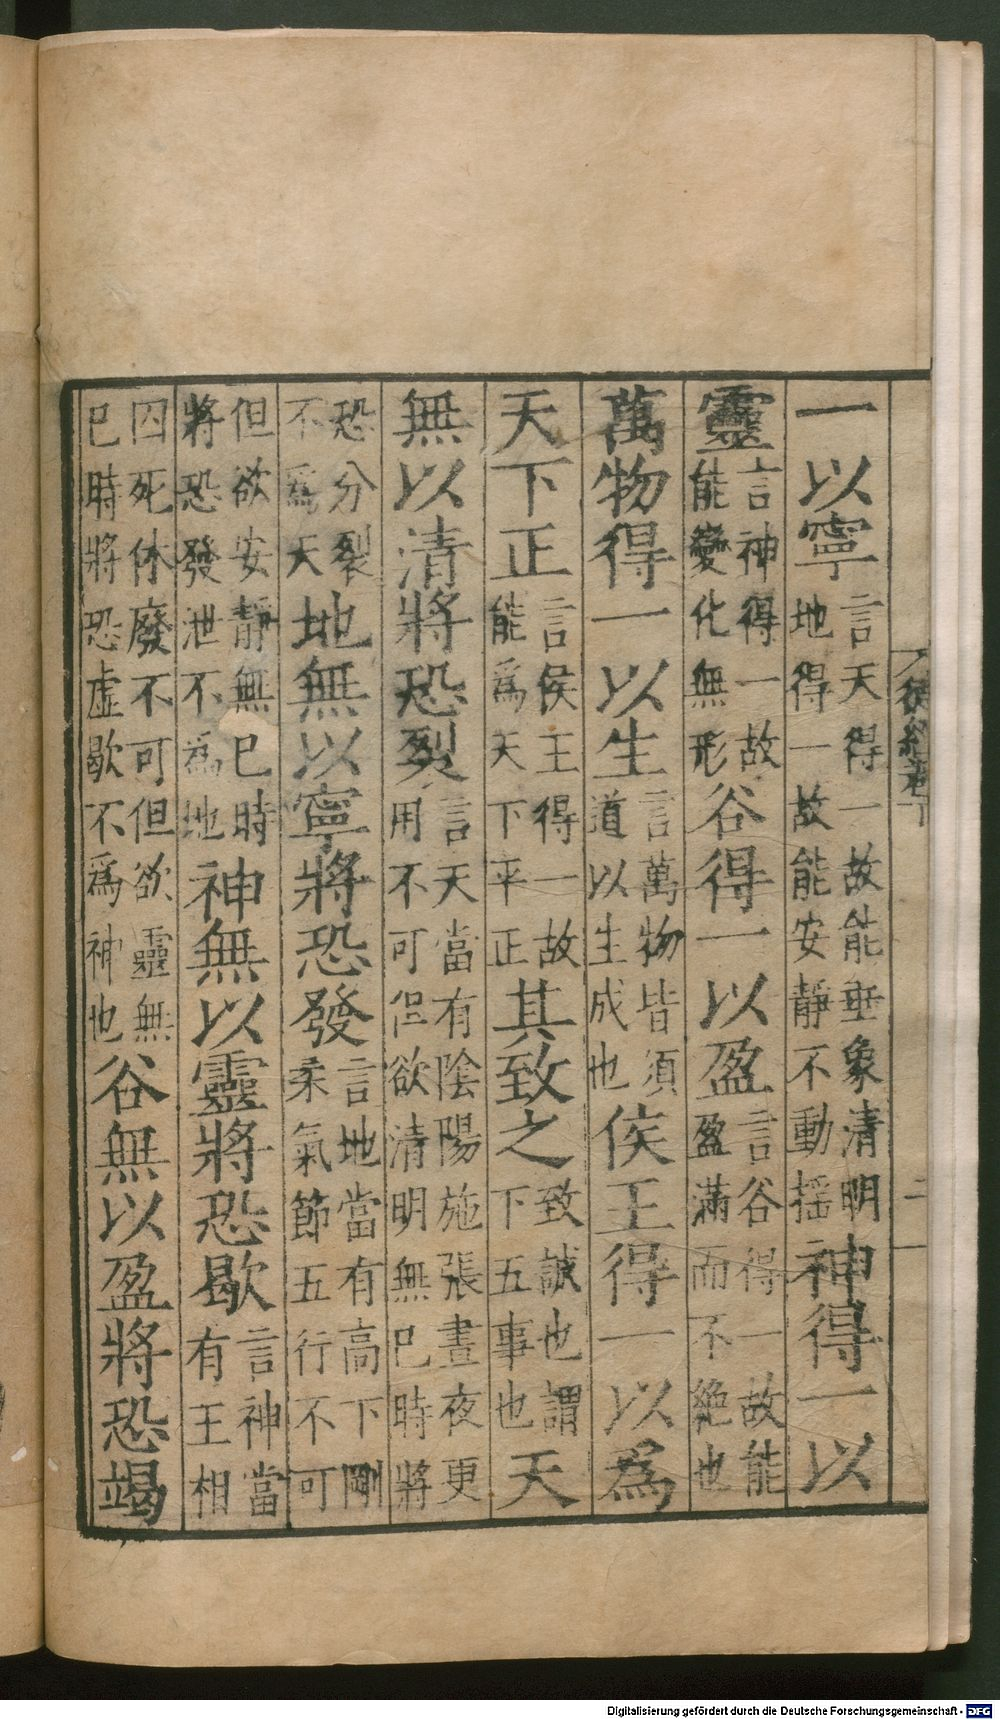 一以寧言天得一故能垂象清明地得一故能安靜不動揺神得一以
靈言神得一故能變化無形谷得一以盈言谷得一故能盈滿而不絶也
萬物得一以生言萬物皆須道以生成也侯王得一以爲
天下正言侯王得一故能爲天下平正其致之致誠也謂下五事也天
無以清將恐裂言天當有陰陽施張晝夜更用不可但欲清明無巳時將
恐分裂不爲天地無以寧將恐發言地當有高下剛柔氣節五行不可
但欲安靜無巳時將恐發泄不為地神無以靈將恐歇言神當有王相
囚死休廢不可但欲靈無巳時將恐虚歇不爲神也谷無以盈將恐竭
德經
下
二
Digitalisierung gefördert durch die Deutsche Forschungsgemeinschaft - DFG